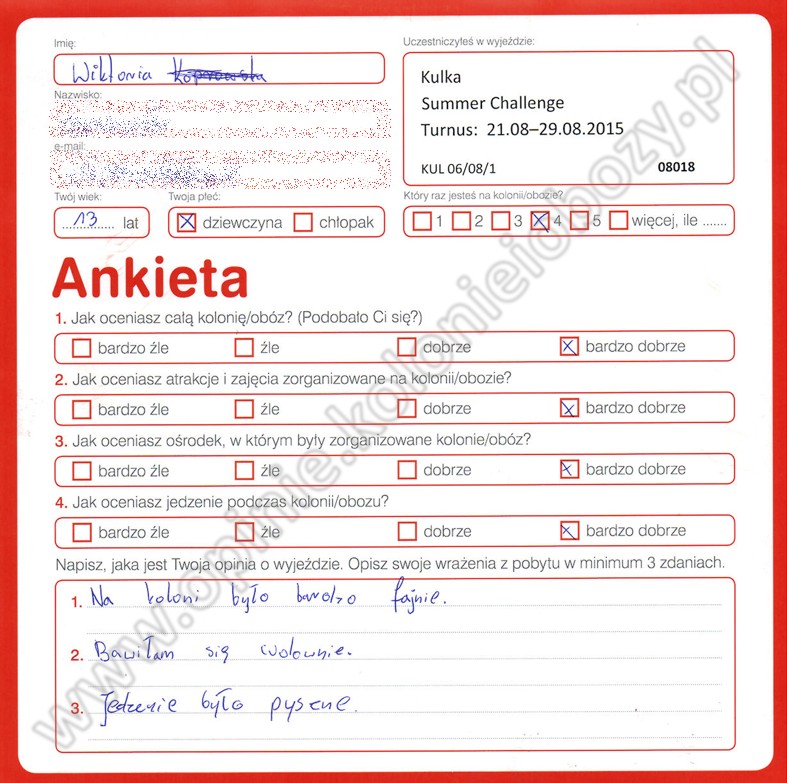 Imię:
Wiktoria
Nazwisko:
e-mail:
Twój wiek:
13 lat
Twoja płeć:
dziewczyna chłopak
Uczestniczyłeś w wyjeździe:
Kulka
Summer Challenge
Turnus: 21.08–29.08.2015
KUL 06/08/1 08018
Który raz jesteś na kolonii/obozie?
1 2 3 4 5 więcej, ile .......
Ankieta
1. Jak oceniasz całą kolonię/obóz? (Podobało Ci się?)
bardzo źle źle dobrze bardzo dobrze
2. Jak oceniasz atrakcje i zajęcia zorganizowane na kolonii/obozie?
bardzo źle źle dobrze bardzo dobrze
3. Jak oceniasz ośrodek, w którym były zorganizowane kolonie/obóz?
bardzo źle źle dobrze bardzo dobrze
4. Jak oceniasz jedzenie podczas kolonii/obozu?
bardzo źle źle dobrze bardzo dobrze
Napisz, jaka jest Twoja opinia o wyjeździe. Opisz swoje wrażenia z pobytu w minimum 3 zdaniach.
1. Na koloni było bardzo fajnie.
2. Bawiłam się cudownie.
3. Jedzenie było pyszne.
www.opinie.kolonieiobozy.pl